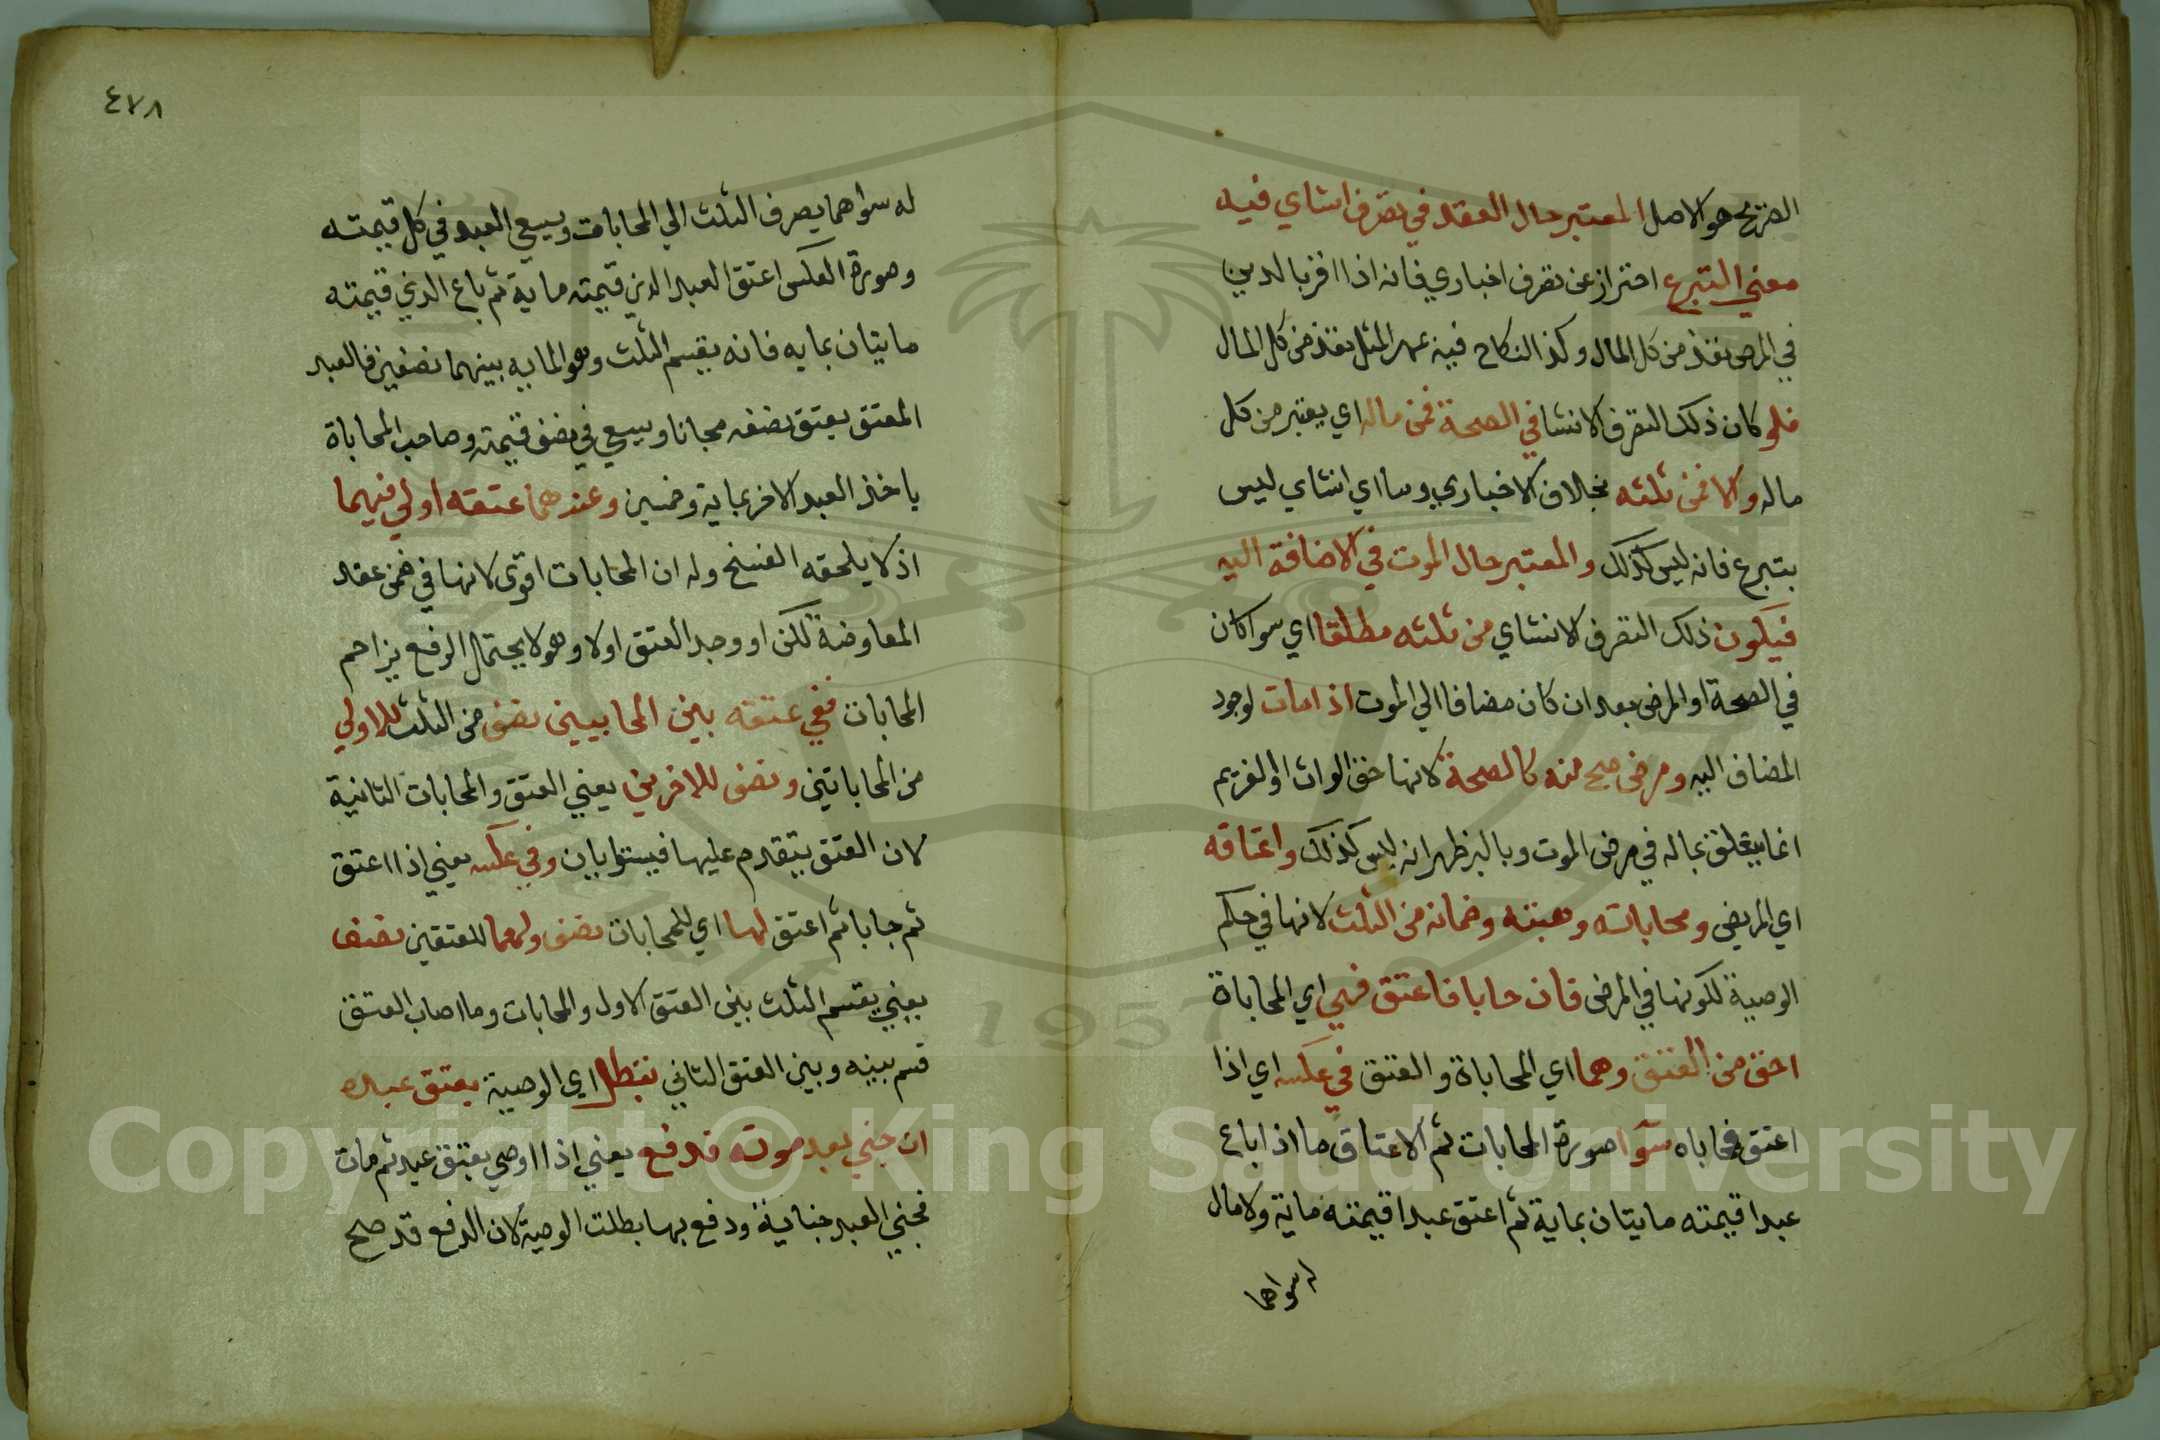 الصريح هو الاصل المعتبر حال العقد في تصرف انشاي فيه
معني التبرع احتراز عن تصرف اخباري فانه اذا اقر بالدين
في المرض نفذ من كل المال وكذ النكاح فيه بمهر المثل نفذ من كل المال
فلو كان ذلك التصرف الانشا في الصحة فمن ماله اي يعتبر من كل
ماله والا فمن ثلثه بخلاف الاخباري وما اي انشاي ليس
بتبرع فانه ليس كذلك والمعتبر حال الموت في الاضافة اليه
فيكون ذلك التصرف الانشاي من ثلثه مطلقا اي سوا كان
في الصحة او المرض بعد ان كان مضافا الي الموت اذا مات لوجود
المضاف اليه ومرض صح منه كالصحة لانها حق الوارث او الغريم
انما يتعلق بماله في مرض الموت وبالبر ظهر انه ليس كذلك واعتاقه
اي المريض ومحاباته وهبته وضمانه من الثلث لانها في حكم
الوصية لكونها في المرض فان حابا فاعتق فهي اي المحاباة
احق من العتق وهما اي المحاباة والعتق في عكسه اي اذا
اعتق فحاباه سوا صورة المحابات ثم الاعتاق ما اذا باع
عبدا قيمته مايتان بماية ثم اعتق عبدا قيمته ماية ولا مال
له سواهما
٤٧٨
له سواهما يصرف الثلث الي المحابات ويسعي العبد في كل قيمته
وصورة العكس اعتق العبد الذي قيمته ماية ثم باع الذي قيمته
مايتان بمايه فانه يقسم الثلث وهو المايه بينهما نصفين فالعبد
المعتق يعتق نصفه مجانا ويسعي في نصف قيمته وصاحب المحاباة
ياخذ العبد الاخر بماية وخمسين وعندهما عتقه اولي فيهما
اذ لا يلحقه الفسخ وله ان المحابات اقوي لانها في ضمن عقد
المعاوضة لكن او وجد العتق اولا وهو لا يحتمل الرفع يزاحم
المحابات ففي عتقه بين المحابيين نصف من الثلث للاولي
من المحاباتين ونصف للاخرين يعني العتق والمحابات الثانية
لان العتق يتقدم عليها فيستويان وفي عكسه يعني اذا اعتق
ثم حابا ثم اعتق لها اي للمحابات نصف ولهما للعتقين نصف
يعني يقسم الثلث بين العتق الاول والمحابات وما اصاب العتق
قسم بينه وبين العتق الثاني تبطل اي الوصية بعتق عبده
ان جني بعد موته فدفع يعني اذا اوصي بعتق عبد ثم مات
فجني العبد جناية ودفع بها بطلت الوصية لان الدفع قد صح
Copyright © King Saud University
1957